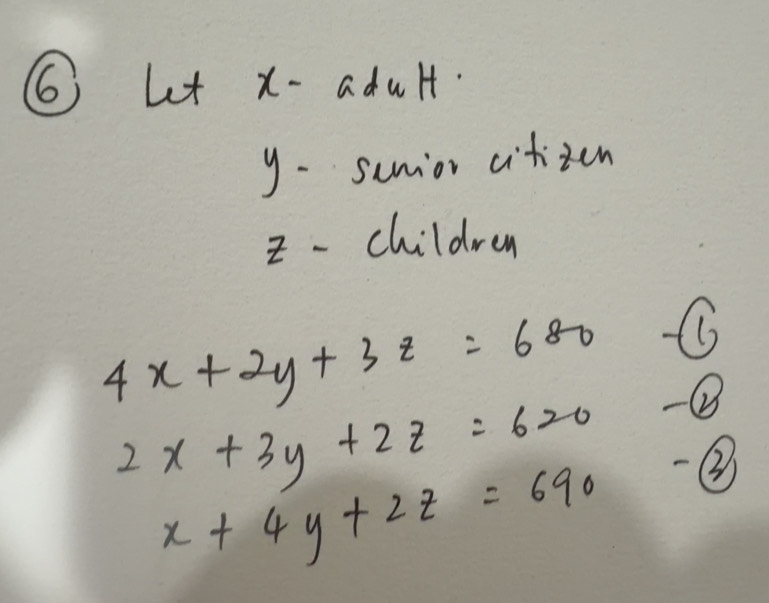 ⑥ Let x - adult.
y - senior citizen
z - children
4x + 2y + 3z = 680 - ①
2x + 3y + 2z = 620 - ②
x + 4y + 2z = 690 - ③